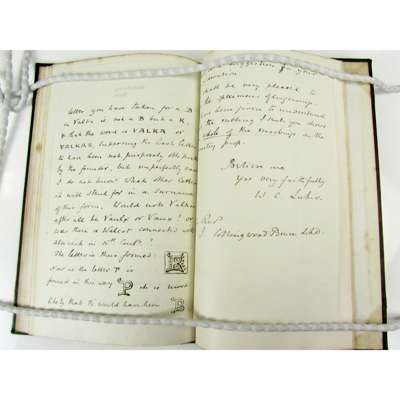 letter you have taken for a B
in Valka is not a B but a K,
& that the word is VALKA or
VALKAS, supposing the last letter
to have been not purposely
by the founder, but imperfectly
I do not know what other letter
it will stand for in a Surname
of this form. Would not Valka
after all be Vaulx or Vaux? or
was there a Walcot connected with
Church in 15th Cent.?
The letter is thus formed K
Now as the letter P is
formed in this way P it is most
likely that B would have been B
suggestion for your
shall be very pleased to
the specimens of engraving.
the rubbing I that you shows
whole of the markings on the
Believe me
Yrs very faithfully
W. C. Lukis
Rev
J. Collingwood Bruce LLD.